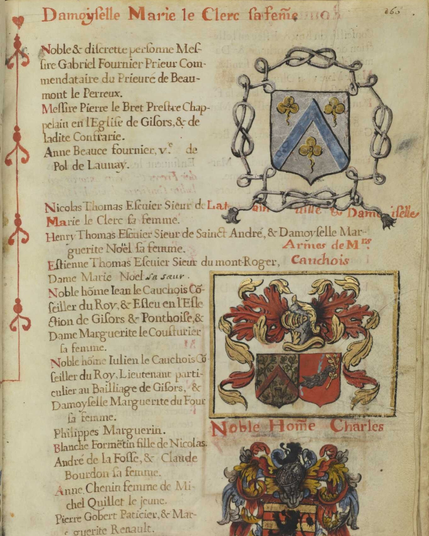 Damoyselle Marie le Clerc sa feme
260
Noble & discrette personne Mes-
sire Gabriel Fournier Prieur Com-
mendataire du Prieure de Beau-
mont le Perreux.
Messire Pierre le Bret Prestre Chap-
pelain en l'Eglise de Gisors, & de
ladite Confrarie.
Anne Beauce fournier, v.e de
Pol de Launay.
Nicolas Thomas Escuier Sieur de & Damoiselle
Marie le Clerc sa femme.
Henry Thomas Escuier Sieur de Sainct André, & Damoyselle Mar-
guerite Noël sa femme.
Armes de Mrs
Estienne Thomas Escuier Sieur du mont-Roger,
Cauchois
Dame Marie Noel sa sœur
Noble hôme Iean le Cauchois Cô
seiller du Roy, & Esleu en l'Esle
ction de Gisors & Ponthoise, &
Dame Marguerite le Cousturier
sa femme.
Noble hôme Iulien le Cauchois Cô
seiller du Roy, Lieutenant parti-
culier au Bailliage de Gisors, &
Damoyselle Marguerite du Four
sa femme.
Noble Home Charles
Philippes Marguerin.
Blanche Formêtin fille de Nicolas.
André de la Fosse, & Claude
Bourdon sa femme.
Anne Chenin femme de Mi-
chel Quillet le jeune.
Pierre Gobert Paticier, & Mar-
guerite Renault.